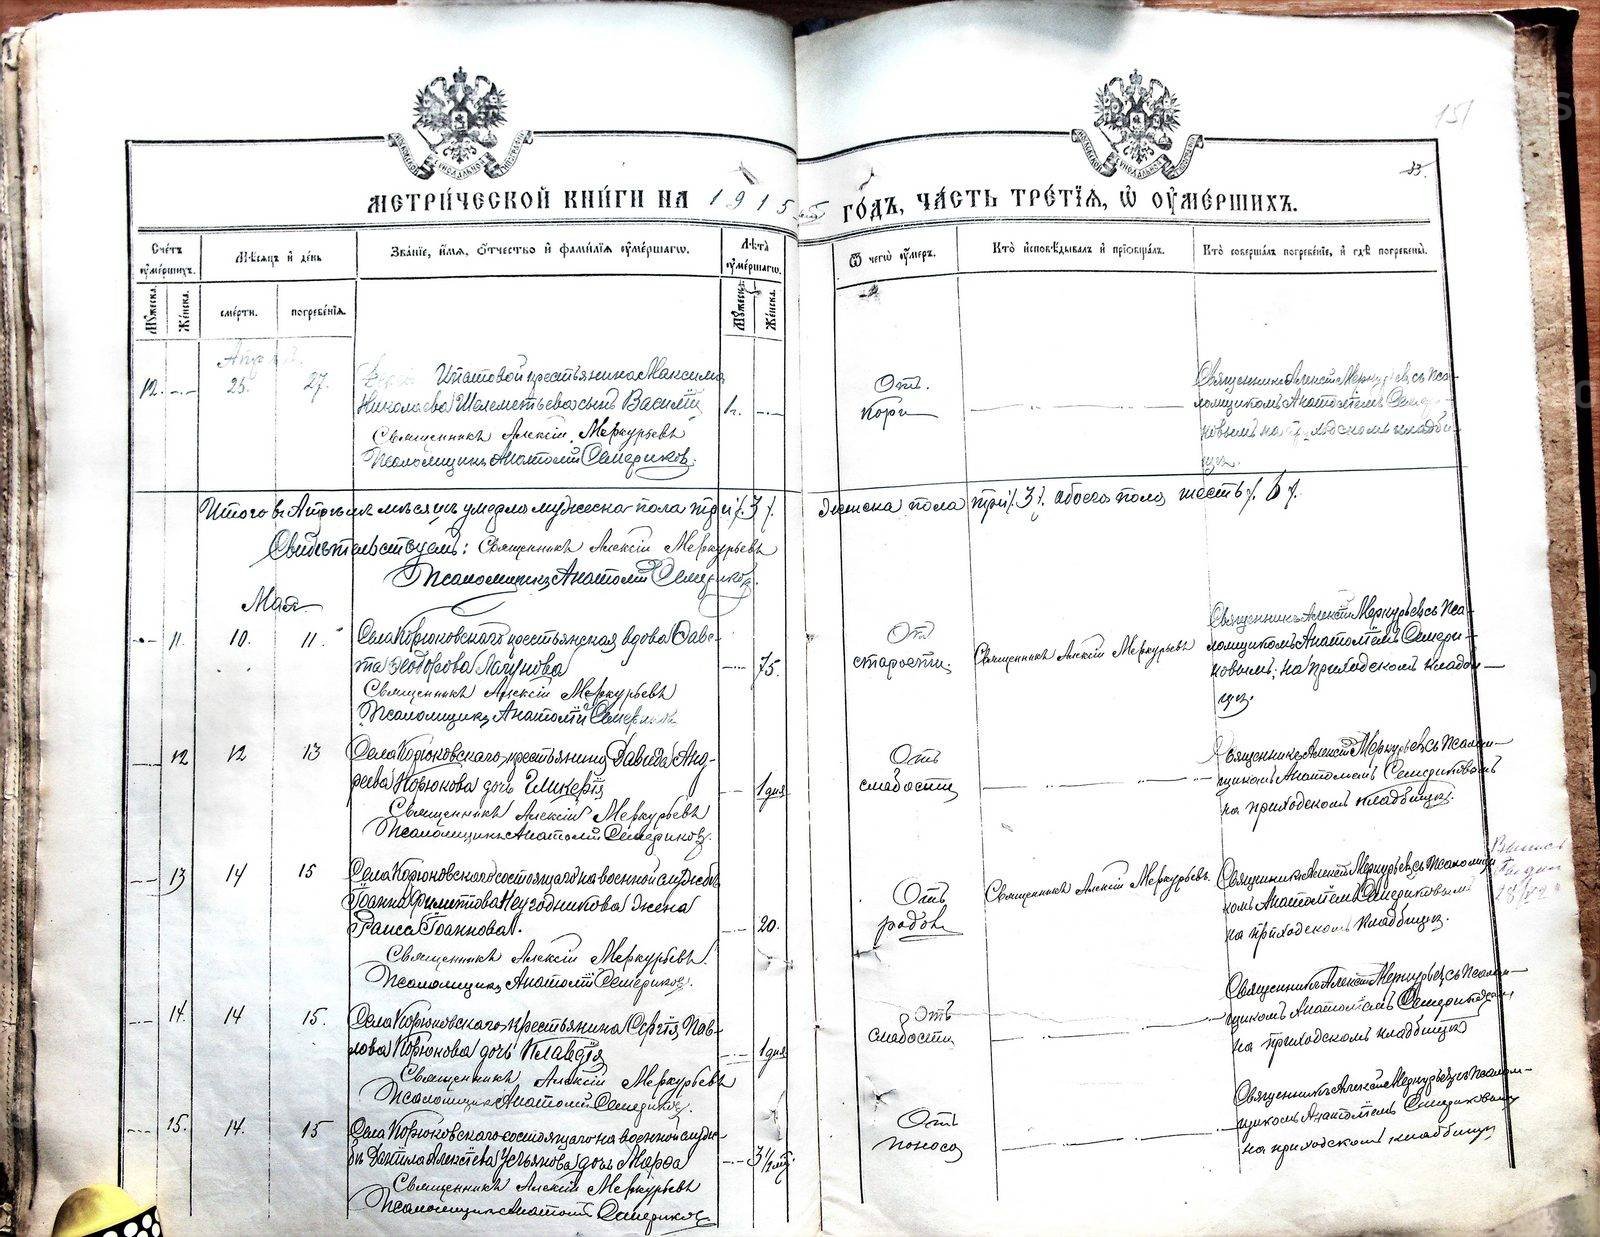 151
83.
МЕТРИ́ЧЕСКОЙ КНИ́ГИ НА 1915 ГО́ДЪ, ЧА́СТЬ ТРЕ́ТІѦ, Ѡ ОУМЕ́РШИХЪ.
Сче́тъ оуме́ршихъ.
Мѣ́сѧцъ и҆ де́нь
Зва́нїе, и҆́мѧ, ѻ҆́тчество и҆ фами́лїѧ оуме́ршагѡ.
Лѣ́та оуме́ршагѡ.
Ѿ чегѡ̀ оу́меръ.
Кто̀ и҆сповѣ́дывалъ и҆ прїѡбща́лъ.
Кто̀ соверша́лъ погребе́нїе, и҆ гдѣ̀ погребены̀.
Му́жеска.
Же́нска.
сме́рти.
погребе́нїѧ.
Му́жеск.
Же́нска.
12. 25. 27. крестьянина Максима
Николаева Шелеметьева сынъ Василій
Священникъ Алексій Меркурьевъ
Псаломщикъ Анатолій Семериковъ.
Отъ
кори
Священникъ Алексій Меркурьевъ съ пса-
ломщикомъ Анатоліемъ Семери-
ковымъ на приходскомъ кладби-
щѣ.
Итого въ Апрѣлѣ мѣсяцѣ умерло мужеска пола три /3/. женска пола три /3/. обоего пола шесть /6/.
Свидѣтельствуемъ: Священникъ Алексій Меркурьевъ
Псаломщикъ Анатолій Семериковъ.
Мая
11. 10. 11. Села Корюковскаго крестьянская вдова
та Ѳеодорова Лагунова 75.
Священникъ Алексій Меркурьевъ
Псаломщикъ Анатолій Семериковъ
Отъ
старости.
Священникъ Алексій Меркурьевъ
Священникъ Алексій Меркурьевъ съ пса-
ломщикомъ Анатоліемъ Семери-
ковымъ на приходскомъ кладби-
щѣ.
12 12 13 Села Корюковскаго крестьянина Давида Анд-
реева Корюкова дочь Гликерія 1 дня
Священникъ Алексій Меркурьевъ
Псаломщикъ Анатолій Семериковъ.
Отъ
слабости
Священникъ Алексій Меркурьевъ съ псалом-
щикомъ Анатоліемъ Семериковымъ
на приходскомъ кладбищѣ.
13 14 15 Села Корюковскаго состоящаго на военной службѣ
Іоанна Филеттова Неугодникова жена
Раиса Іоаннова. 20.
Священникъ Алексій Меркурьевъ.
Псаломщикъ Анатолій Семериковъ.
Отъ
родов
Священникъ Алексій Меркурьевъ.
Священникъ Алексій Меркурьевъ съ псаломщи-
комъ Анатоліемъ Семериковымъ
на приходскомъ кладбищѣ.
14. 14 15. Села Корюковскаго крестьянина Сергія Пав-
лова Корюкова дочь Клавдія 1 дня
Священникъ Алексій Меркурьевъ
Псаломщикъ Анатолій Семериковъ.
Отъ
слабости
Священникъ Алексій Меркурьевъ съ псалом-
щикомъ Анатоліемъ Семериковымъ
на приходскомъ кладбищѣ
15. 14. 15 Села Корюковскаго состоящаго на военной служ-
бѣ Данила Алексіева Устьянова дочь Марѳа 3 1/2 мѣс.
Священникъ Алексій Меркурьевъ
Псаломщикъ Анатолій Семериковъ
Отъ
поноса
Священникъ Алексій Меркурьевъ съ псалом-
щикомъ Анатоліемъ Семериковымъ
на приходскомъ кладбищѣ